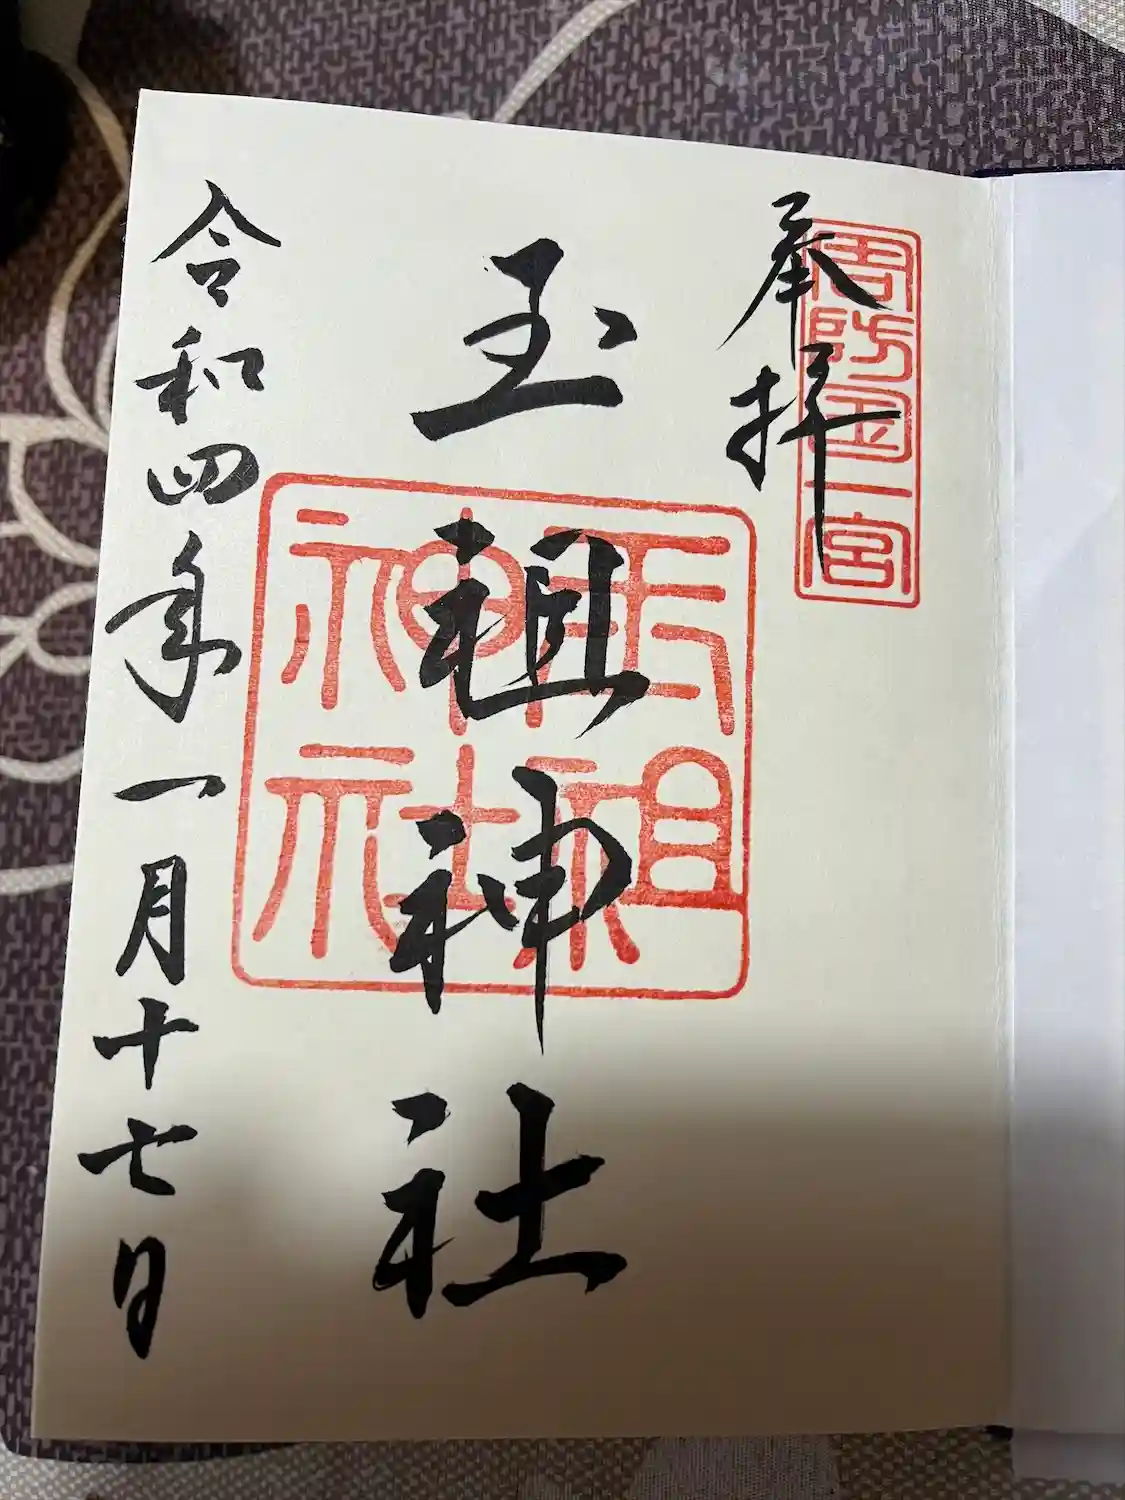 奉拝
周防国一宮
玉祖神社
玉祖神社
令和四年一月十七日